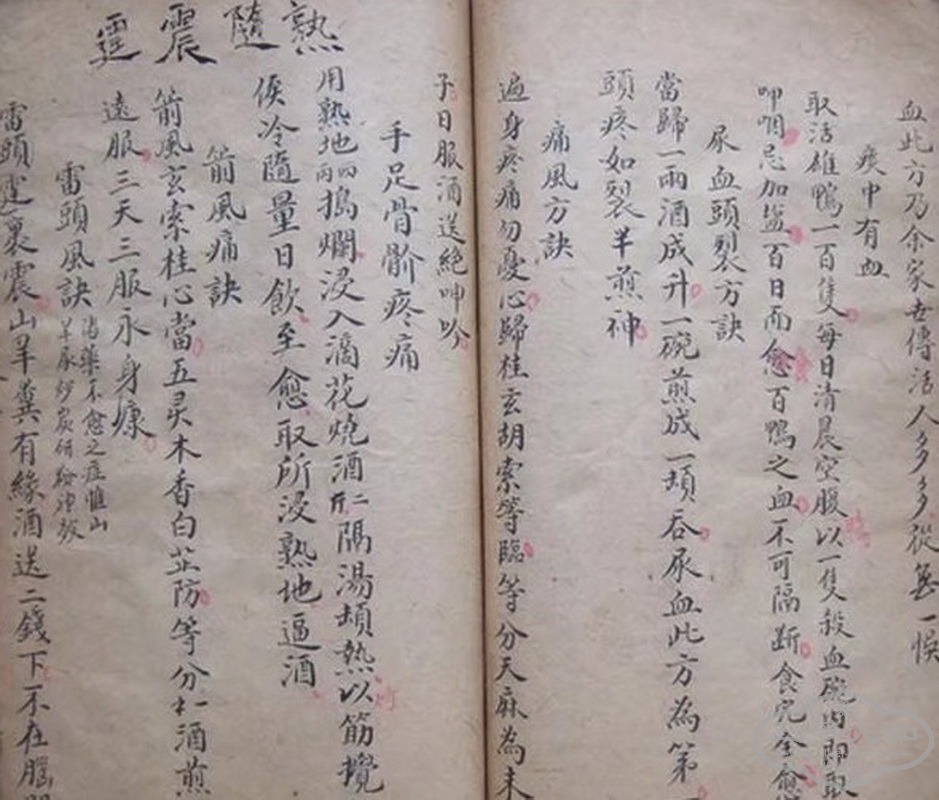 血此方乃余家世傳活人多多從無一悞
痰中有血
取活雄鴨一百隻每日清晨空腹以一隻殺血碗内即取
呷咽忌加盐百日而愈百鴨之血不可隔斷食完全愈
尿血頭裂方訣
當歸一兩酒成升一碗煎成一頓吞尿血此方為第一
頭疼如裂半煎神
痛風方訣
遍身疼痛勿憂心歸桂玄胡索等臨等分天麻為末
子日服酒送絶呻吟
手足骨骱疼痛
用熟地四两搗爛浸入滴花烧酒二斤隔湯頓熱以筋攪
候冷隨量日飲至愈取所浸熟地逼酒
箭風痛訣
箭風玄索桂心當五灵木香白芷防等分仁酒煎
遠服三天三服永身康
雷頭風訣
諸藥不愈之症惟山
羊尿炒炭研給沖放
雷頭霆裹震山羊糞有緣酒送二錢下不在腦
熟隨震霆